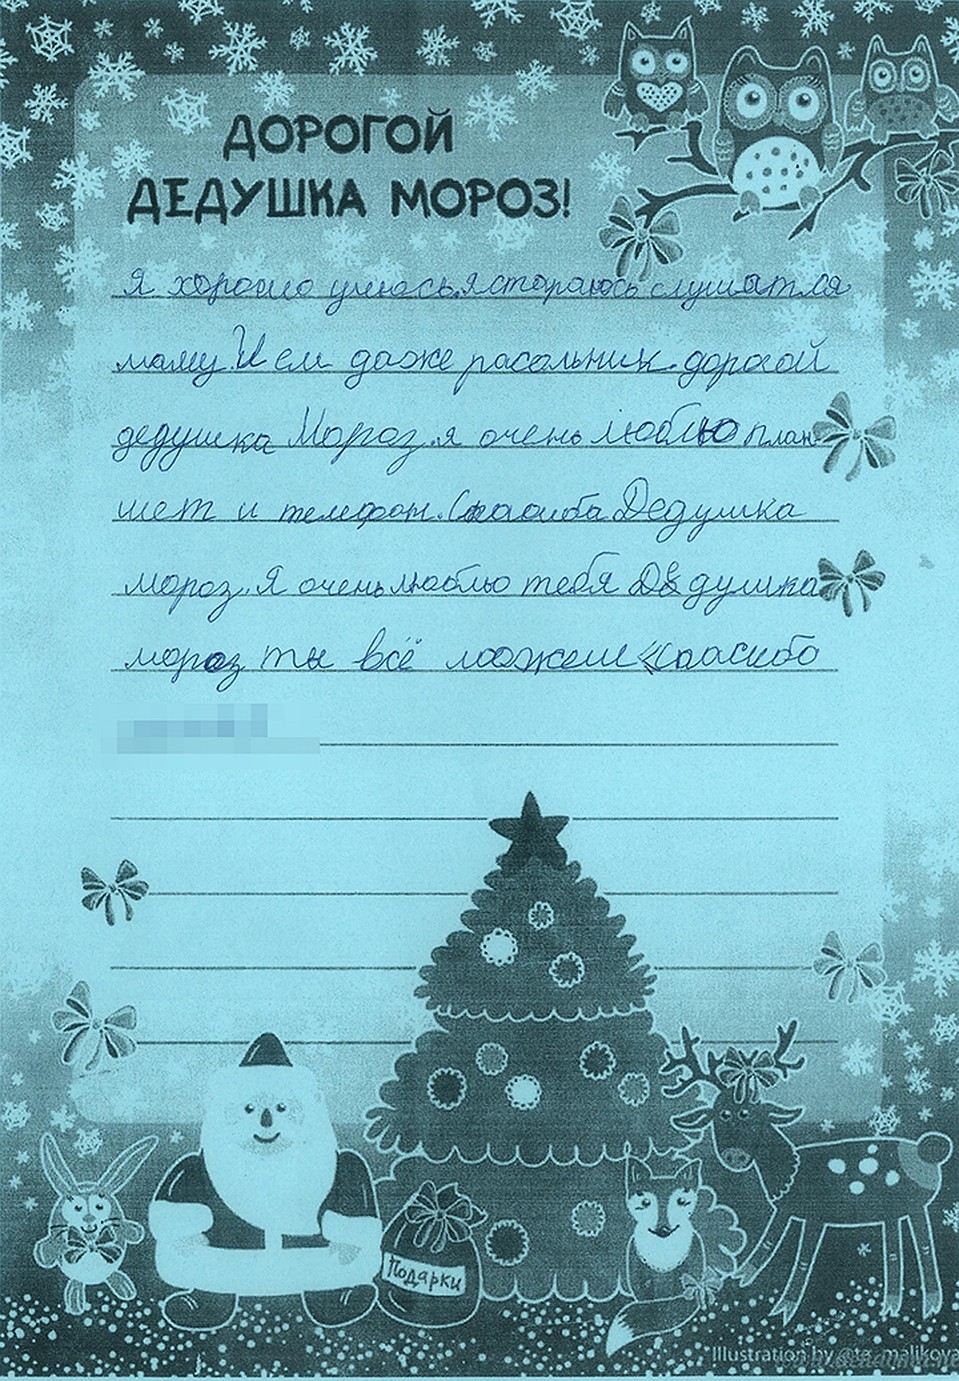 ДОРОГОЙ
ДЕДУШКА МОРОЗ!
Я хорошо учюсь.я стораюсь слушатля
маму. И ем даже расольник. дорогой
дедушка Мороз. я очень люблю план-
шет и телефон. Спасиба Дедушка
мороз. Я очень люблю тебя Дедушка
мороз ты всё можеш спасибо
Подарки
Illustration by @ta_malikova